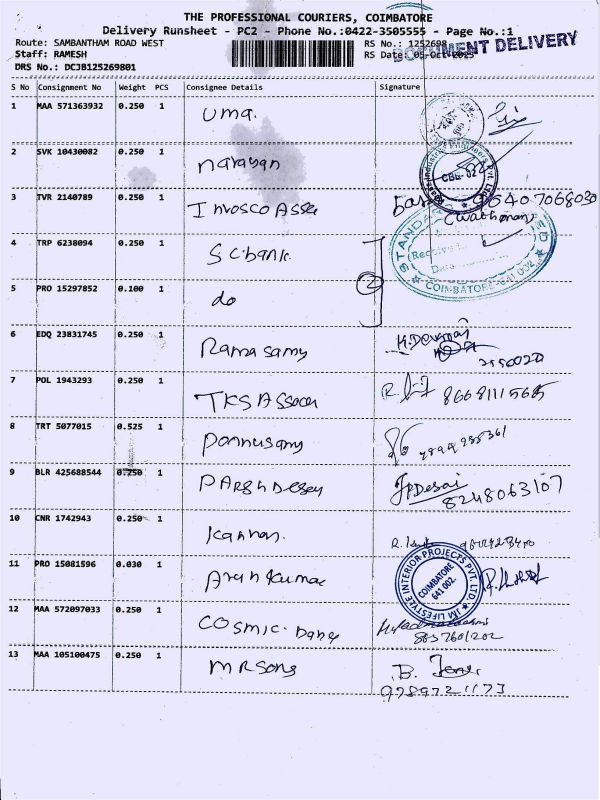 THE PROFESSIONAL COURIERS, COIMBATORE
Delivery Runsheet - PC2 - Phone No.:0422-3505555 - Page No.:1
Route: SAMBANTHAM ROAD WEST
RS No.: 1252698
DOCUMENT DELIVERY
Staff: RAMESH
RS Date: 05-Oct-2025
DRS No.: DCJB125269801
S No Consignment No Weight PC Consignee Details Signature
1 MAA 571363932 0.250 1 uma.
2 SVK 10430082 0.250 1 narayan
CBE- 02
3 TVR 2140789 0.250 1 Invosco Asso
4 TRP 6238094 0.250 1 SC bank.
COIMBATORE-641 002
5 PRO 15297852 0.100 1 do
2
6 EDQ 23831745 0.250 1 Ramasamy
H.Devaraj
7 POL 1943293 0.250 1 TKS Assoca
8668111565
8 TRT 5077015 0.525 1 Ponnusamy
9 BLR 425688544 0.250 1 PARSH DESEY
JPDesai
8248063107
10 CNR 1742943 0.250 1 Kannan.
11 PRO 15081596 0.030 1 Arun kumar
JM LIFESTYLE INTERIOR PROJECTS PVT. LTD.
COIMBATORE
641 002.
12 MAA 572097033 0.250 1 COSMIC.
8057601202
13 MAA 105100475 0.250 1 MRSong
B.
9789721173